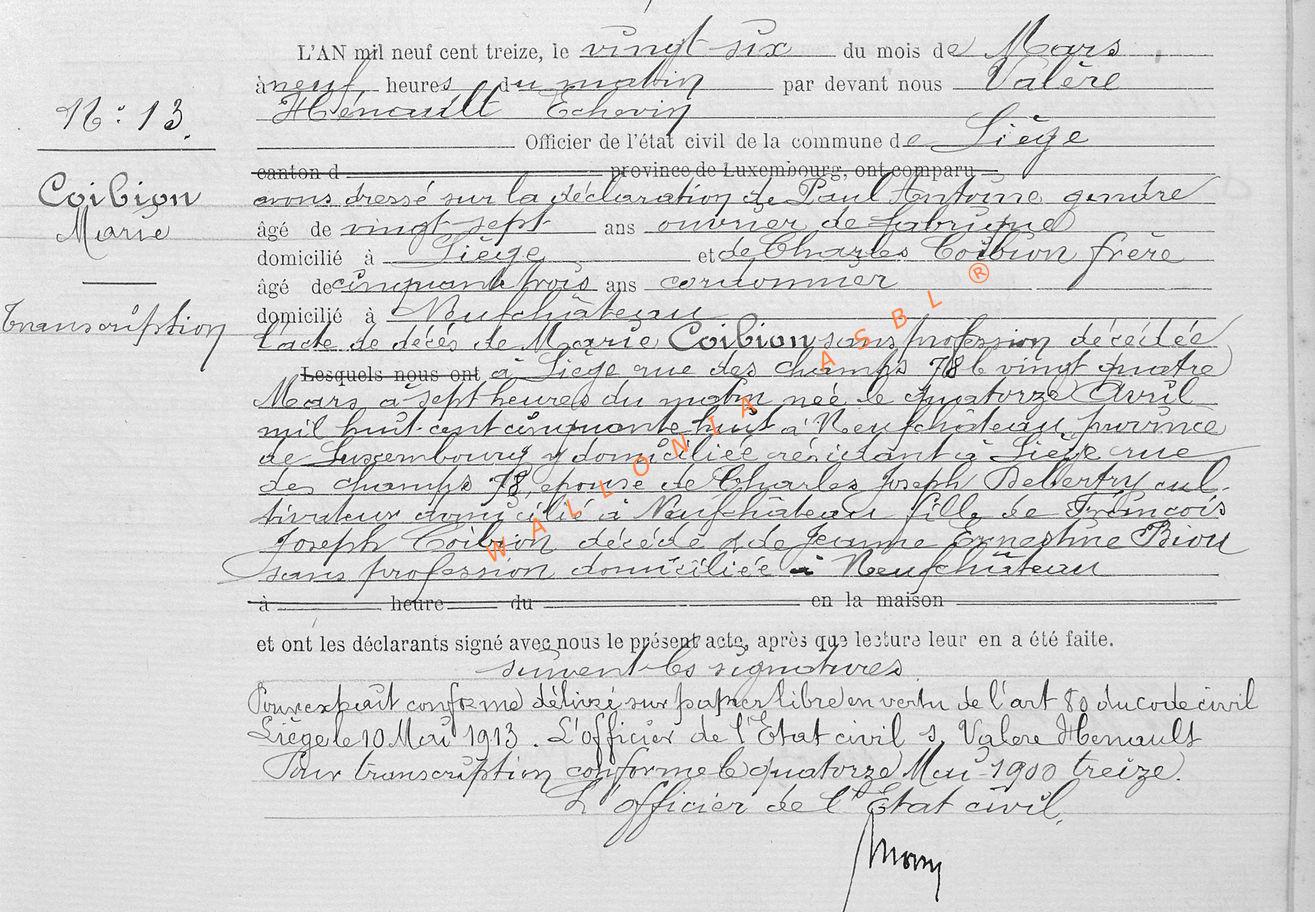 L'AN mil neuf cent treize, le vingt six du mois de Mars
à neuf heures du matin par devant nous Valère
Hénault Echevin
Officier de l'état civil de la commune de Liège
canton d province de Luxembourg, ont comparu
avons dressé sur la déclaration de Paul Antoine gendre
âgé de vingt sept ans ouvrier de fabrique
domicilié à Liège et de Charles Coibion frère
âgé de cinquante trois ans cordonnier
domicilié à Neufchâteau
l'acte de décés de Marie Coibion sans profession décédée
Lesquels nous ont à Liège rue des champs 78 le vingt quatre
Mars à sept heures du matin née le quatorze Avril
mil huit cent cinquante huit à Neufchâteau province
de Luxembourg y domiciliée résidant à Liège rue
des champs 78, épouse de Charles Joseph cul-
tivateur domicilié à Neufchâteau fille de François
Joseph Coibion décédé & de Jeanne Ernestine Biou
sans profession domiciliée à Neufchâteau
à heure du en la maison
et ont les déclarants signé avec nous le présent acte, après que lecture leur en a été faite.
suivent les signatures
Pour extrait conforme délivré sur papier libre en vertu de l'art 80 du code civil
Liège le 10 Mai 1913. L'officier de l'Etat civil s. Valere Henault
Pour transcription conforme le quatorze Mai 1900 treize.
L'officier de l'Etat civil,
N: 13.
Coibion
Marie
Transcription
WALLONIA ASBL ®